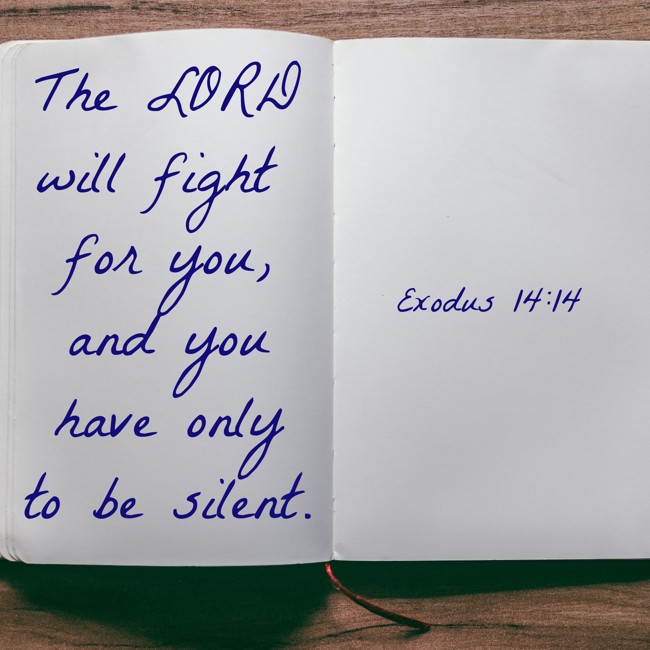 The LORD
will fight
for you,
and you
have only
to be silent.
Exodus 14:14